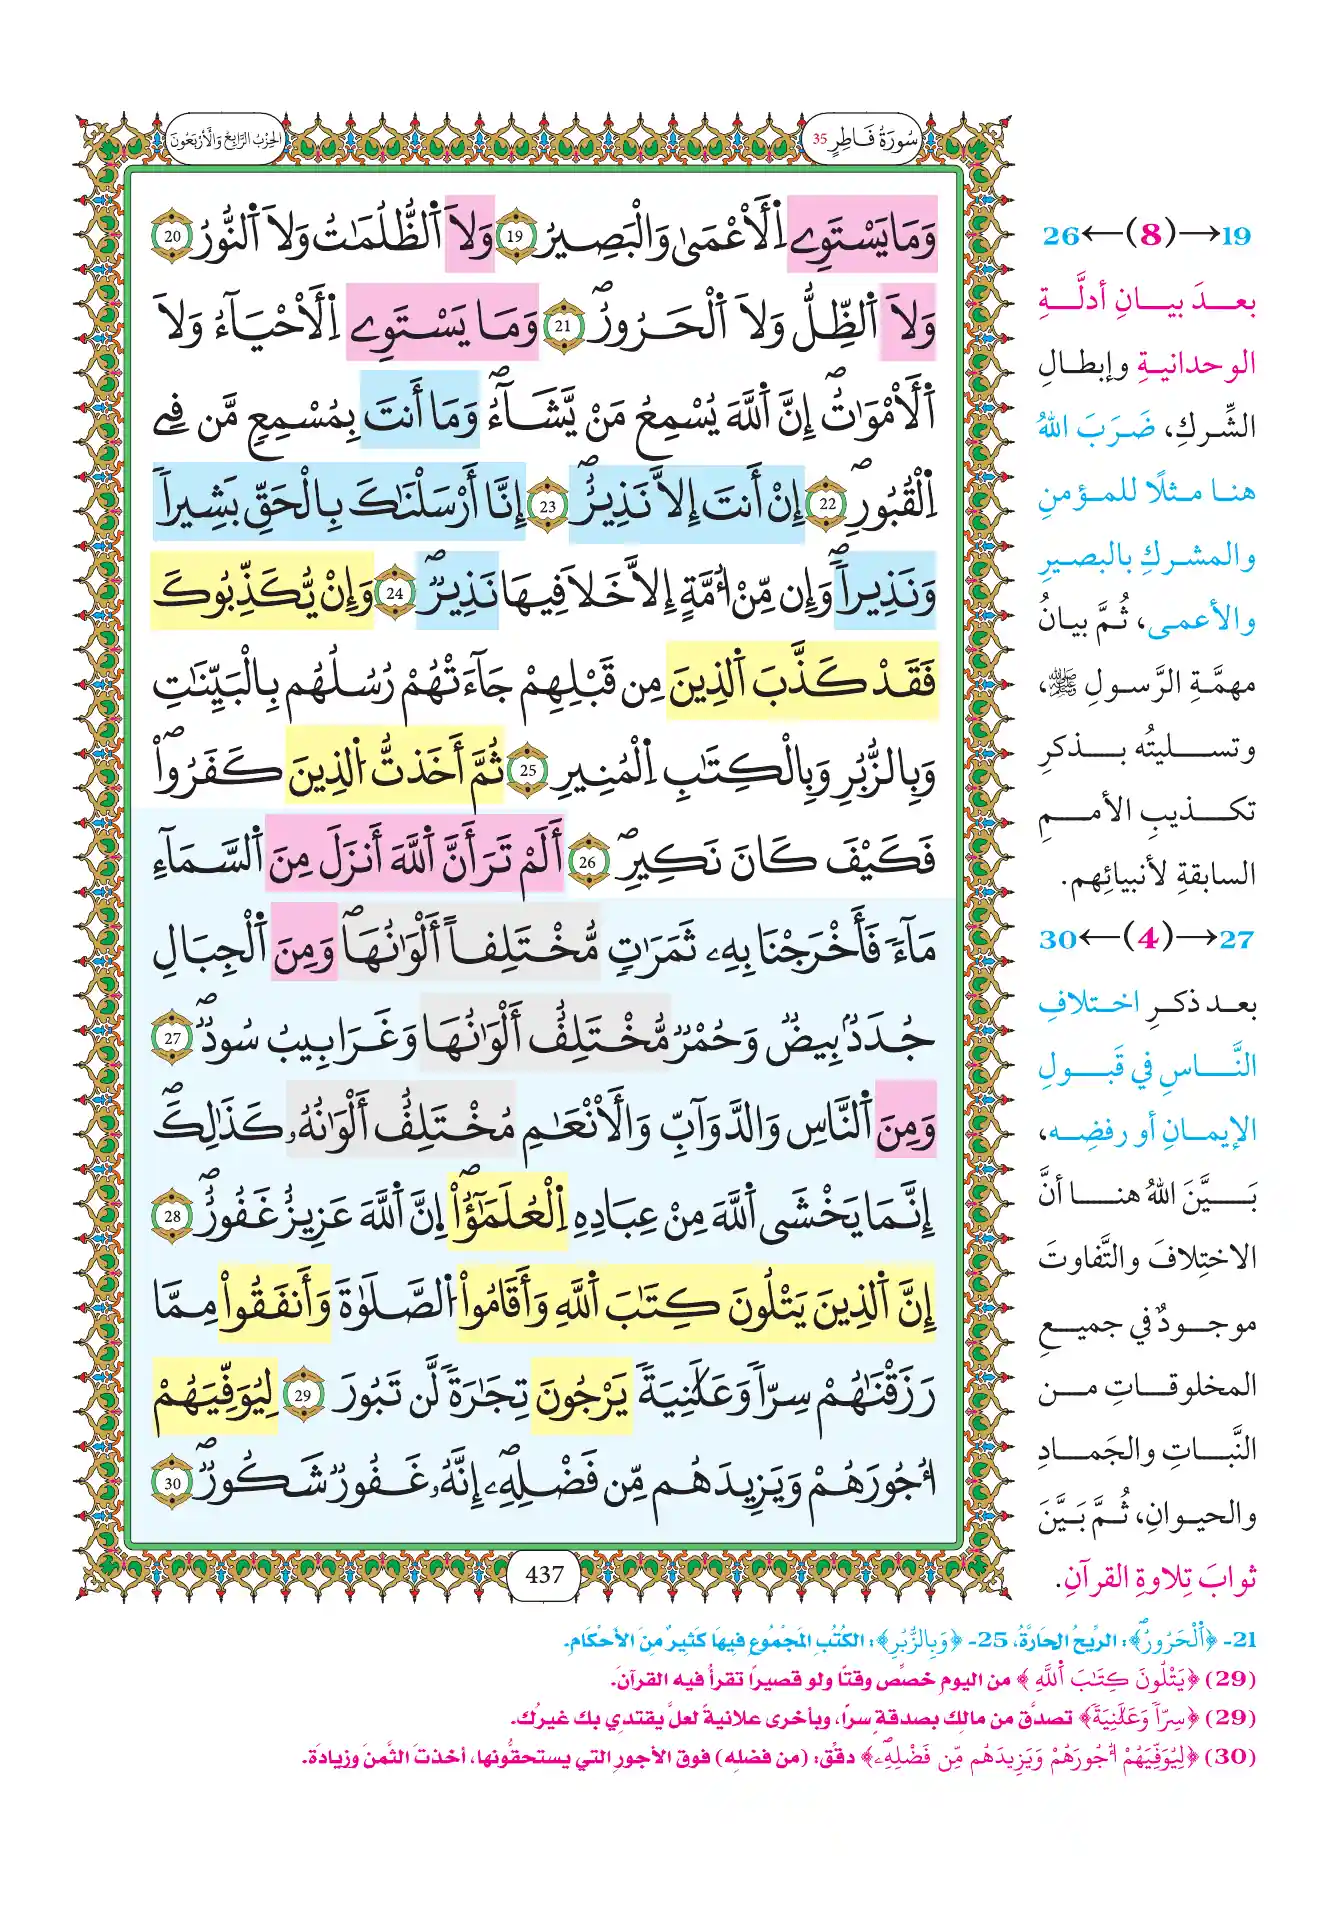 سُورَةُ فَاطِرٍ 35
الحِزْبُ الرَّابِعُ وَالأَرْبَعُونَ
وَمَا يَسْتَوِے اِ۬لَاعْمَىٰ وَالْبَصِيرُ 19 وَلَا اَ۬لظُّلُمَٰتُ وَلَا اَ۬لنُّورُ 20
وَلَا اَ۬لظِّلُّ وَلَا اَ۬لْحَرُورُۖ 21 وَمَا يَسْتَوِے اِ۬لَاحْيَآءُ وَلَا
اَ۬لَامْوَٰتُۖ إِنَّ اَ۬للَّهَ يُسْمِعُ مَنْ يَّشَآءُۖ وَمَا أَنتَ بِمُسْمِعٖ مَّن فِے
اِ۬لْقُبُورِۖ 22 إِنَ اَنتَ إِلَّا نَذِيرٌۖ 23 اِنَّا أَرْسَلْنَٰكَ بِالْحَقِّ بَشِيراٗ
وَنَذِيراٗۖ وَإِن مِّنُ اُمَّةٍ اِلَّا خَلَا فِيهَا نَذِيرٌۖ 24 وَإِنْ يُّكَذِّبُوكَ
فَقَدْ كَذَّبَ اَ۬لذِينَ مِن قَبْلِهِمْ جَآءَتْهُمْ رُسُلُهُم بِالْبَيِّنَٰتِ
وَبِالزُّبُرِ وَبِالْكِتَٰبِ اِ۬لْمُنِيرِ 25 ثُمَّ أَخَذتُّ اُ۬لذِينَ كَفَرُواْۖ
فَكَيْفَ كَانَ نَكِيرِۖ 26 أَلَمْ تَرَ أَنَّ اَ۬للَّهَ أَنزَلَ مِنَ اَ۬لسَّمَآءِ
مَآءٗ فَأَخْرَجْنَا بِهِۦ ثَمَرَٰتٖ مُّخْتَلِفاً اَلْوَٰنُهَاۖ وَمِنَ اَ۬لْجِبَالِ
جُدَدُۢ بِيضٞ وَحُمْرٞ مُّخْتَلِفٌ اَلْوَٰنُهَا وَغَرَابِيبُ سُودٞۖ 27
وَمِنَ اَ۬لنَّاسِ وَالدَّوَآبِّ وَالَانْعَٰمِ مُخْتَلِفٌ اَلْوَٰنُهُۥ كَذَٰلِكَۖ
إِنَّمَا يَخْشَى اَ۬للَّهَ مِنْ عِبَادِهِ اِ۬لْعُلَمَٰٓؤُاْۖ اِنَّ اَ۬للَّهَ عَزِيزٌ غَفُورٌۖ 28
اِنَّ اَ۬لذِينَ يَتْلُونَ كِتَٰبَ اَ۬للَّهِ وَأَقَامُواْ اُ۬لصَّلَوٰةَ وَأَنفَقُواْ مِمَّا
رَزَقْنَٰهُمْ سِرّاٗ وَعَلَٰنِيَةٗ يَرْجُونَ تِجَٰرَةٗ لَّن تَبُورَ 29 لِيُوَفِّيَهُمُ
أُجُورَهُمْ وَيَزِيدَهُم مِّن فَضْلِهِۦۖ إِنَّهُۥ غَفُورٞ شَكُورٞۖ 30
437
19→(8)←26
بعدَ بيانِ أدلَّةِ
الوحدانيةِ وإبطالِ
الشِّركِ، ضَرَبَ اللهُ
هنا مثلًا للمؤمنِ
والمشركِ بالبصيرِ
والأعمى، ثُمَّ بيانُ
مهمَّةِ الرَّسولِ ﷺ،
وتسليتُه بذكرِ
تكذيبِ الأممِ
السابقةِ لأنبيائِهم.
27→(4)←30
بعد ذكرِ اختلافِ
النَّاسِ في قَبولِ
الإيمانِ أو رفضِه،
بَيَّنَ اللهُ هنا أنَّ
الاختِلافَ والتَّفاوتَ
موجودٌ في جميعِ
المخلوقاتِ من
النَّباتِ والجَمادِ
والحيوانِ، ثُمَّ بَيَّنَ
ثوابَ تِلاوةِ القرآنِ.
21- ﴿اَ۬لْحَرُورُۖ﴾: الرِّيحُ الحَارَّةُ، 25- ﴿وَبِالزُّبُرِ﴾: الكُتُبِ المَجْمُوعِ فِيهَا كَثِيرٌ مِنَ الأَحْكَامِ.
(29) ﴿يَتْلُونَ كِتَٰبَ اَ۬للَّهِ﴾ من اليوم خصِّص وقتًا ولو قصيرًا تقرأُ فيه القرآنَ.
(29) ﴿سِرّاٗ وَعَلَٰنِيَةٗ﴾ تصدَّق من مالِك بصدقةٍ سرًا، وبأخرى علانيةً لعلَّ يقتدِي بك غيرُك.
(30) ﴿لِيُوَفِّيَهُمُ أُجُورَهُمْ وَيَزِيدَهُم مِّن فَضْلِهِۦۖ﴾ دقِّق: (من فضلِه) فوق الأجورِ التي يستحقُّونها، أخذتَ الثَّمنَ وزيادَة.